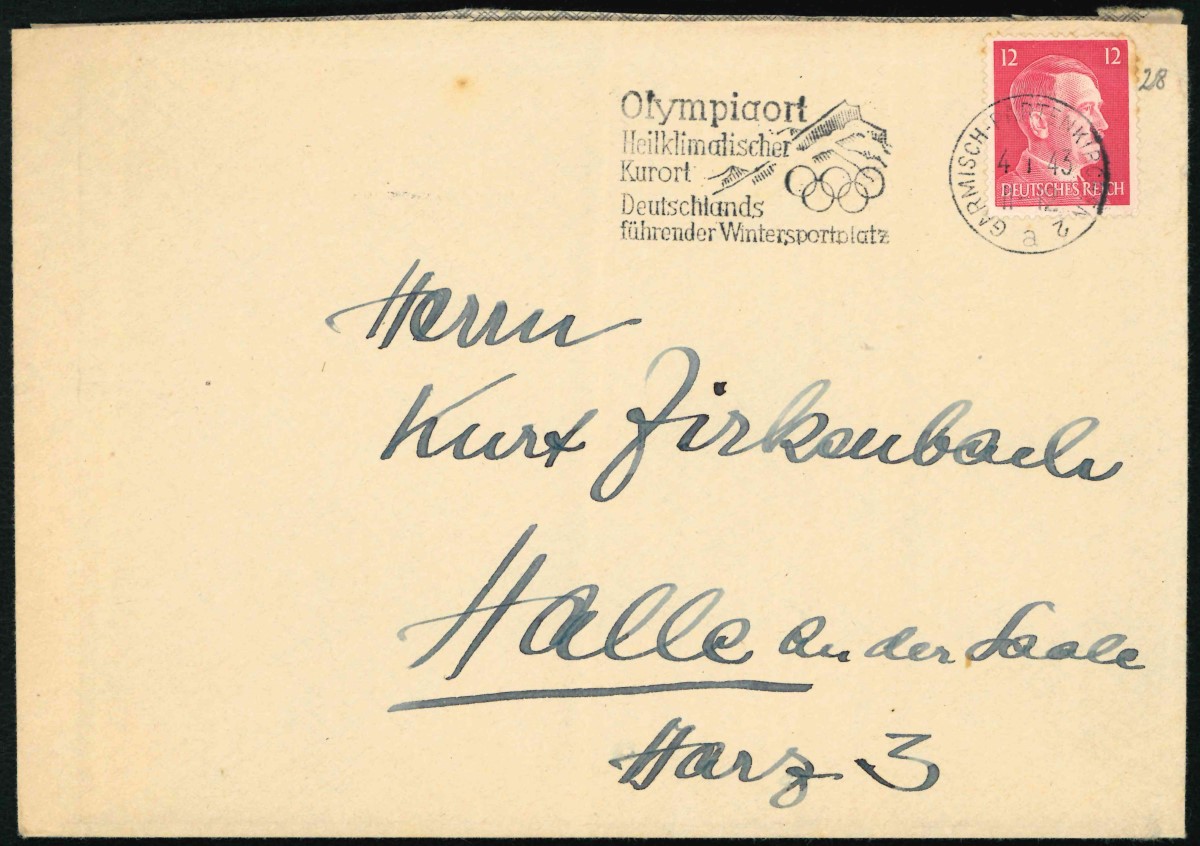 12 12
28
Olympiaort
Heilklimatischer
Kurort
Deutschlands
führender Wintersportplatz
GARMISCH-PARTENKIRCHEN 2
4 1 43
a
DEUTSCHES REICH
Herrn
Kurt Zirkenbach
Halle an der Saale
Harz 3